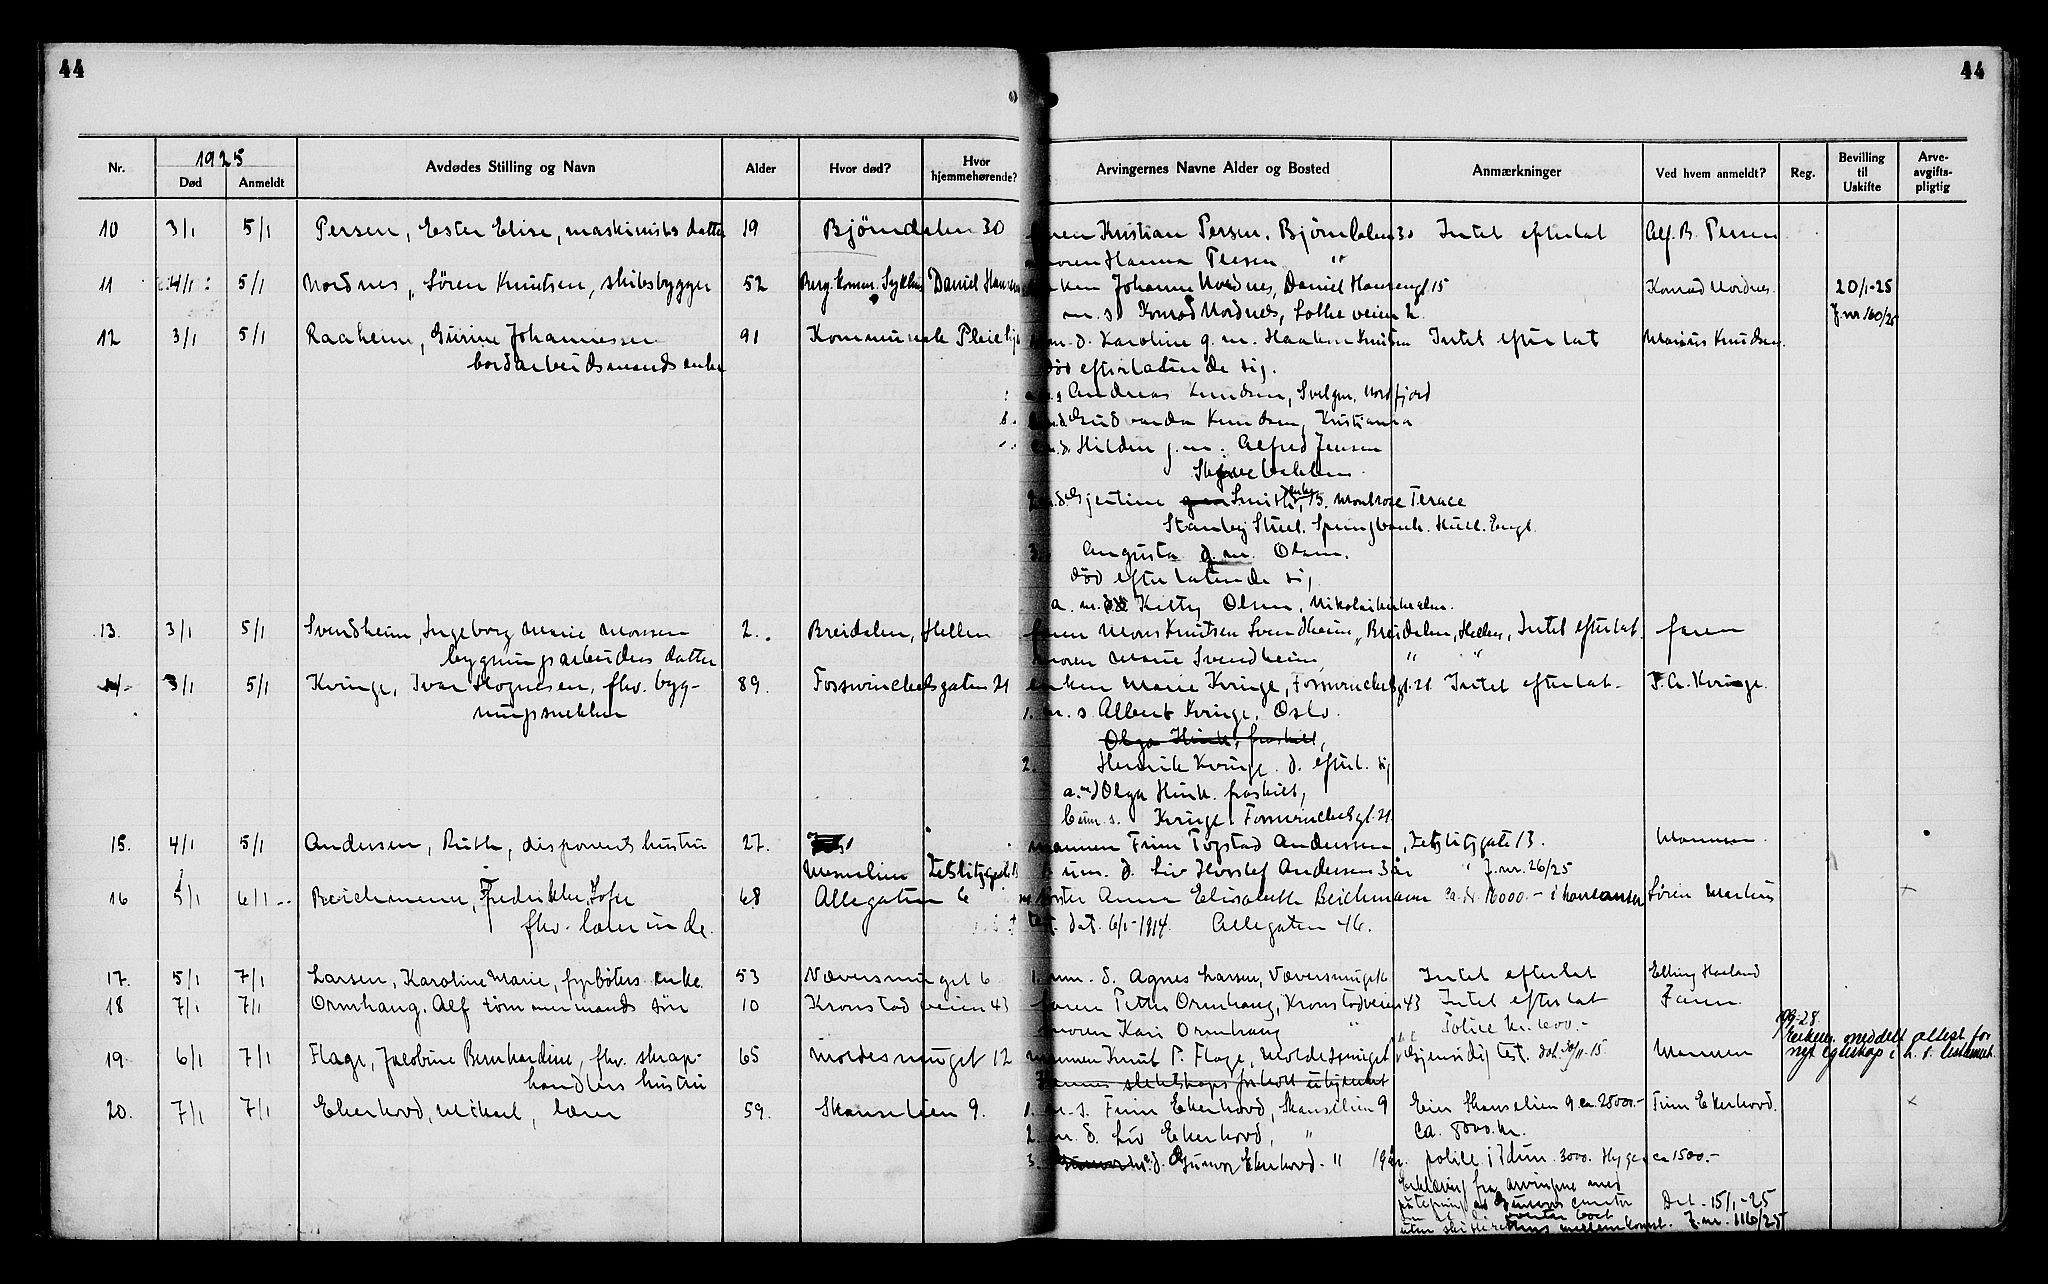 44
44
Nr.
1925
Død
Anmeldt
Avdødes Stilling og Navn
Alder
Hvor død?
Hvor hjemmehørende?
Arvingernes Navne Alder og Bosted
Anmærkninger
Ved hvem anmeldt?
Reg.
Bevilling til Uskifte
Arve-avgifts-pligtig
10 3/1 5/1 Persen, Ester Elise, maskinists datter 19 Bjørndalen 30 faren Kristian Persen, Bjørndalen 30 Intet efterlat Alf. B. Persen
moren Hanna Persen "
11 4/1 5/1 Nordnes, Søren Knutsen, skibsbygger 52 Berg. komm. Sykehus Daniel Hansens enken Johanne Nordnes, Daniel Hansengt 15 Konrad Nordnes 20/1-25
m. s. Konrad Nordnes, Lotheveien 2. J.nr 160/25
12 3/1 5/1 Raaheim, Gurine Johannessen 91 Kommunale Pleiehj. m. d. Karoline g. m. Haakon Knutsen Intet efterlat Marius Knudsen
bordarbeidsmands enke død efterlatende sig.
Andreas Knudsen, Svelgen, Nordfjord
Knudsen, Kristiania
Hilda g. m. Alfred Jensen
Gjertine Smith, enke, 13. Montrose Terace
Stanley Street. Springbank. Hull. Engl.
3. Augusta g. m. Olsen.
død efterlatende sig
a. m. d. Kitty Olsen, Nikolaikirkealm.
13. 3/1 5/1 Svendheim, Ingeborg Marie Monsen 2. Breidalen, Hellen faren Mons Knutsen Svendheim, Breidalen, Hellen, Intet efterlat. faren
bygningsarbeiders datter moren Marie Svendheim, " "
14 3/1 5/1 Kvinge, Ivar Mognesen, fhv. byg- 89. Fosswinckelsgaten 21 enken Marie Kvinge, Fosswinckelsgt. 21 Intet efterlat- Kvinge.
ningssnekker 1. m. s. Albert Kvinge, Oslo.
Olga fraskilt,
2. Henrik Kvinge d. efterl. sig
a. Olga fraskilt,
b. um. s. Kvinge Fosswinckelsgt. 21
15. 4/1 5/1 Andersen, Ruth, disponents hustru 27.
mannen Finn Togstad Anderssen, Zetlitzgate 13. Mannen
Zetlitzgate 13 um. d. Liv Andersen 3 år " J. nr. 26/25
16 5/1 6/1 Beichmann, Fredrikke Sofie 68 Allegaten 6 søster Anna Elisabeth Beichmann ca. kr 10000.- i kontanter Søren Markus ×
fhv. lærerinde. test. dat. 6/1-1914. Allegaten 46.
17. 5/1 7/1 Larsen, Karoline Marie, fyrbøters enke. 53 Væversmuget 6 1. um. d. Agnes Larsen, Væversmuget 6 Intet efterlat Elling Haaland
18 7/1 7/1 Ormhaug. Alf tømmermands søn 10 Kronstadveien 43 faren Petter Ormhaug, Kronstadveien 43 Intet efterlat Faren.
moren Kari Ormhaug " Police kr. 600.-
19. 6/1 7/1 Flage, Jacobine Bernhardine, fhv. skrap- 65 Moldesmuget 12 mannen Knut P. Flage, Moldesmuget Gjensidig test. dat. 30/11-15 Mannen
handlers hustru
Enken meddelt attest for
nyt egteskap i h. t. testament.
20. 7/1 7/1 Ekerhovd, Mikael, lærer 59. Skanselien 9. 1. m. s. Finn Ekerhovd, Skanselien 9 Eier Skanselien 9 ca 28000.- Finn Ekerhovd. ×
2. m. d. Liv Ekerhovd, " ca. 8000 kr.
3. d. Gunvor Ekerhovd. " 19 år. police i Idun. 3000. Hygea ca 1500.-
Erklæring fra arvingene med
påtegning av Gunvors curator
overtar boet
uten skifterettens mellemkomst.
Dat. 15/1-25
J. nr. 116/25